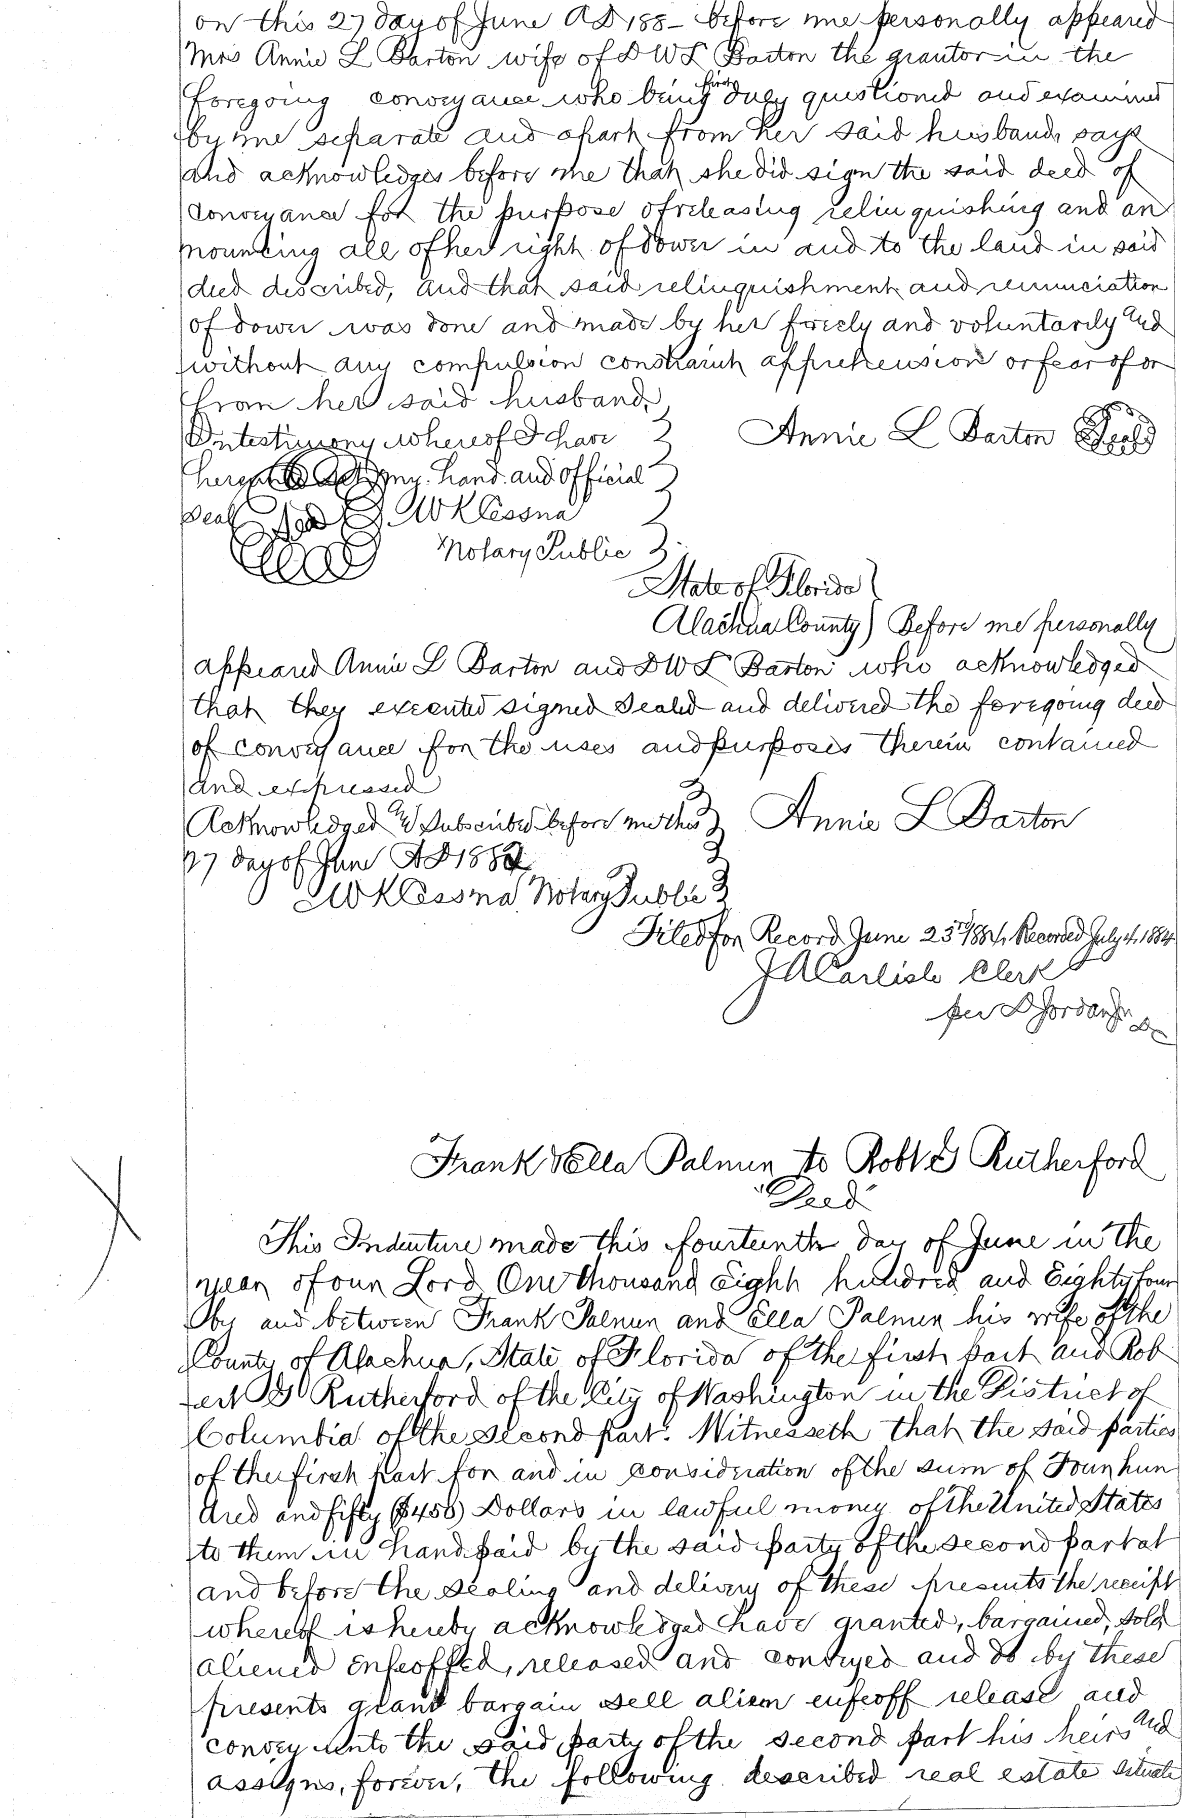 on this 27 day of June AD 188_ before me personally appeared
Mrs Annie L Barton wife of D W L Barton the grantor in the
foregoing conveyance who being first duly questioned and examined
by me separate and apart from her said husband, says
and acknowledges before me that she did sign the said deed of
conveyance for the purpose of releasing relinquishing and an
nouncing all of her right of dower in and to the land in said
deed described, and that said relinquishment and renunciation
of dower was done and made by her freely and voluntarily and
without any compulsion constraint apprehension or fear of or
from her said husband.
In testimony whereof I have
Annie L Barton Seal
hereunto set my hand and official
seal Seal W K Cessna
Notary Public
State of Florida
Alachua County) Before me personally
appeared Annie L Barton and D W L Barton who acknowledged
that they executed signed sealed and delivered the foregoing deed
of conveyance for the uses and purposes therein contained
and expressed
Acknowledged and Subscribed before me this
Annie L Barton
27 day of June AD 188
W K Cessna Notary Public
Filed for Record June 23rd 1884, Recorded July 4, 1884
J A Carlisle Clerk
per D Jordan Jr DC
Frank & Ella Palmer to Robt G Rutherford
"Deed"
This Indenture made this fourteenth day of June in the
year of our Lord One thousand Eight hundred and Eighty four
by and between Frank Palmer and Ella Palmer his wife of the
County of Alachua, State of Florida of the first part and Rob
ert G Rutherford of the City of Washington in the District of
Columbia of the second part. Witnesseth that the said parties
of the first part for and in consideration of the sum of Four hun
dred and fifty ($450) Dollars in lawful money of the United States
to them in hand paid by the said party of the second part at
and before the sealing and delivery of these presents the receipt
whereof is hereby acknowledged have granted, bargained, sold,
aliened enfeoffed, released and conveyed and do by these
presents grant bargain sell alien enfeoff release and
convey unto the said party of the second part his heirs and
assigns, forever, the following described real estate situate